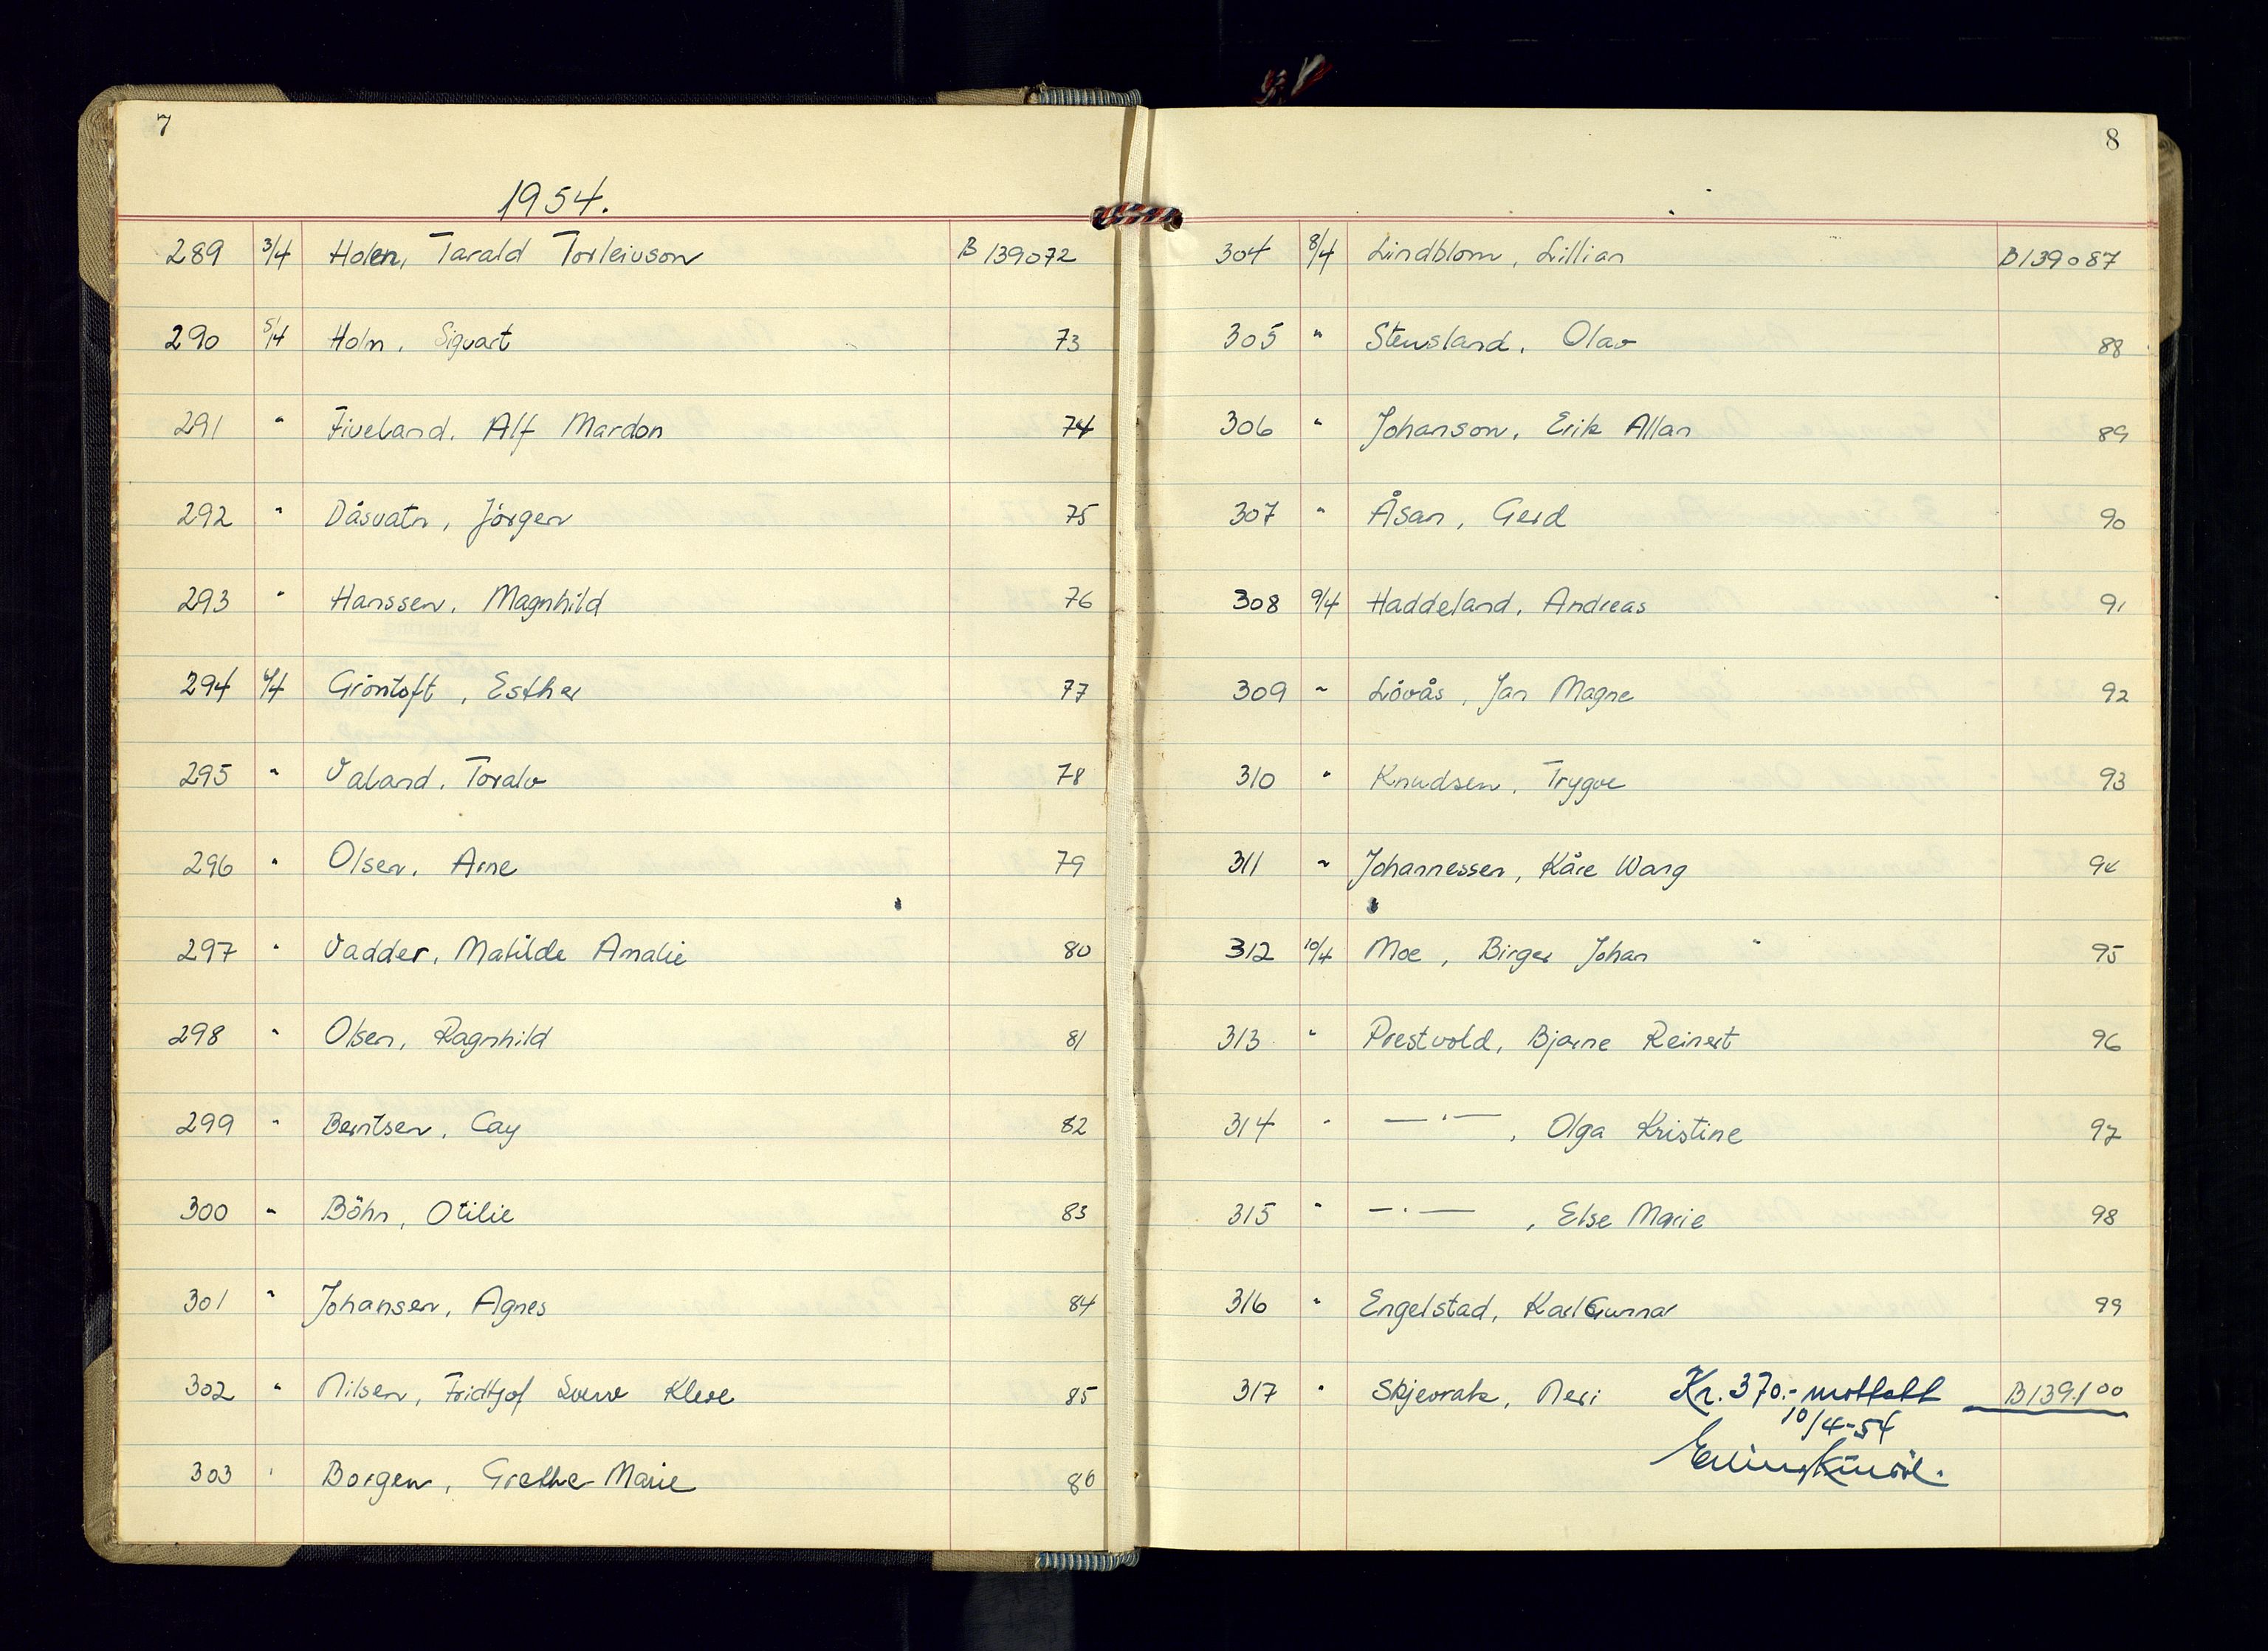 7
1954.
289 3/4 Holen, Tarald Torleivson B 139072
290 5/4 Holm, Sigvart 73
291 " Fiveland, Alf Mardon 74
292 " Dåsvatn, Jörgen 75
293 " Hanssen, Magnhild 76
294 /4 Gröntoft, Esther 77
295 " Valand, Toralv 78
296 " Olsen, Arne 79
297 " Vadder, Matilde Amalie 80
298 " Olsen, Ragnhild 81
299 " Berntsen, Cay 82
300 " Böhn, Otilie 83
301 " Johansen, Agnes 84
302 " Nilsen, Fridtjof Kleve 85
303 " Borgen, Grethe Marie 86
8
304 8/4 Lindblom, Lillian B139087
305 " Stensland, Olav 88
306 " Johanson, Erik Allan 89
307 " Åsan, Gerd 90
308 9/4 Haddeland, Andreas 91
309 " Lövås, Jan Magne 92
310 " Knudsen, Trygve 93
311 " Johannessen, Kåre Wang 94
312 10/4 Moe, Birger Johan 95
313 " Prestvold, Bjarne Reinert 96
314 " —"—, Olga Kristine 97
315 " —"—, Else Marie 98
316 " Engelstad, Karl Gunnar 99
317 " Skjevrak, Neri Kr. 370.- mottatt B139100
10/4-54